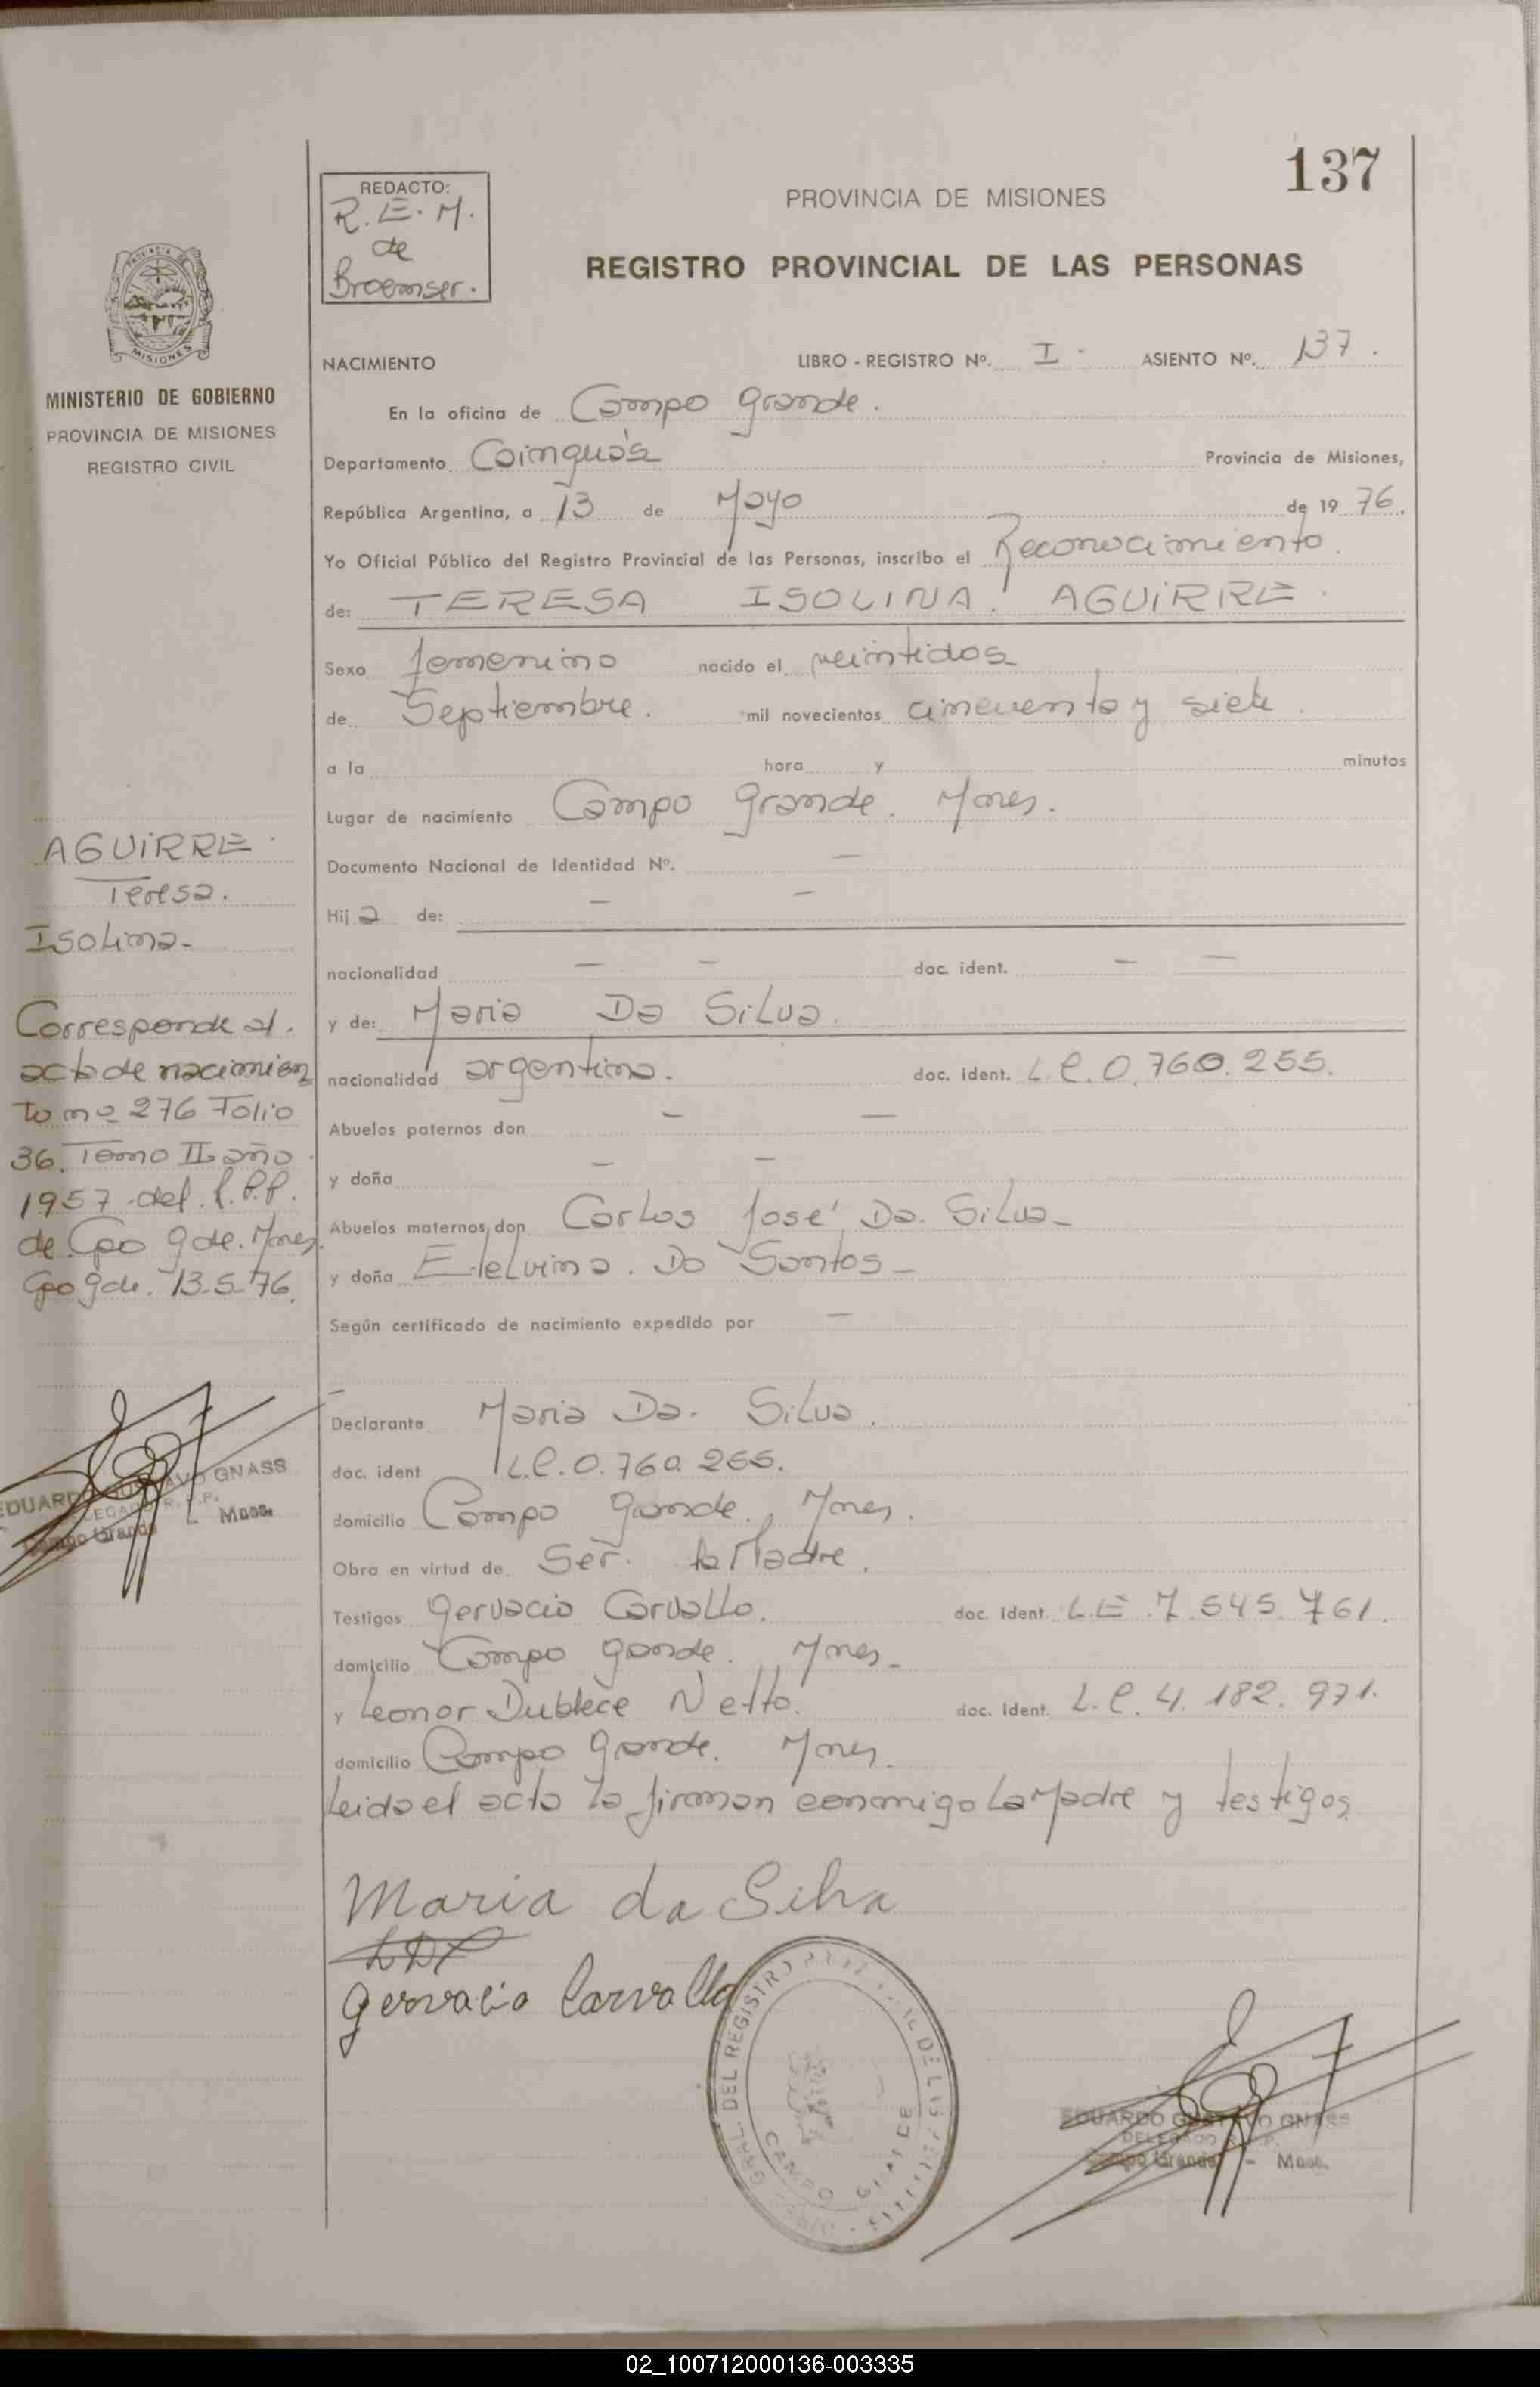 137
REDACTO:
R.E.M.
de
Broemser.
PROVINCIA DE MISIONES
REGISTRO PROVINCIAL DE LAS PERSONAS
MINISTERIO DE GOBIERNO
PROVINCIA DE MISIONES
REGISTRO CIVIL
NACIMIENTO LIBRO - REGISTRO Nº. I. ASIENTO Nº. 137.
En la oficina de Campo Grande.
Departamento Cainguás Provincia de Misiones,
República Argentina, a 13 de Mayo de 19 76.
Yo Oficial Público del Registro Provincial de las Personas, inscribo el Reconocimiento.
de: TERESA ISOLINA. AGUiRRE.
Sexo femenino nacido el veintidos
de Septiembre. mil novecientos cincuenta y siete.
a la hora y minutos
Lugar de nacimiento Campo Grande. Mnes.
Documento Nacional de Identidad Nº. —
Hij a de: — —
nacionalidad — — doc. ident. — —
y de: Maria Da Silva.
nacionalidad argentina. doc. ident. L.C.0.760.255.
Abuelos paternos don — —
y doña — —
Abuelos maternos don Carlos José Da. Silva-
y doña Etelvina. Do Santos-
Según certificado de nacimiento expedido por —
—
Declarante Maria Da. Silva.
doc. ident L.C.0.760.255.
domicilio Campo Grande. Mnes.
Obra en virtud de Ser. la Madre.
Testigos Gervacio Carvallo. doc. Ident. L.E.7.545.761.
domicilio Campo Grande. Mnes-
y Leonor Dublece Netto. doc. Ident. L.C.4.182.971.
domicilio Campo Grande. Mnes.
Leida el acta la firman conmigo la Madre y testigos.
AGUiRRE.
Teresa.
Isolina-
Corresponde al.
acta de nacimien
to nº 276 Folio
36. Tomo II año
1957 del R.P.P.
de Cpo Gde. Mnes.
Cpo Gde. 13-5-76.
EDUARDO GUSTAVO GNASS
DELEGADO R.P.P.
Campo Grande - Mnes.
Maria da Silva
LDN
Gervacio Carvallo
GRAL. DEL REGISTRO PROVINCIAL DE LAS PERSONAS
CAMPO GRANDE
EDUARDO GUSTAVO GNASS
DELEGADO R.P.P.
Campo Grande - Mnes.
02_100712000136-003335